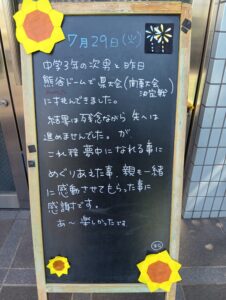 7月29日(火)
中学3年の次男と昨日
熊谷ドームで県大会(南関大会
決定戦)
に行ってきました。
結果は残念ながら 先へは
進めませんでした。が
これ程 夢中になれる事に
めぐりあえた事、親も一緒
に感動させてもらった事に
感謝です。
あ〜 楽しかったです。